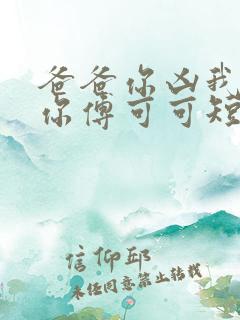 爸爸你凶我
你傅可可短
信仰邱
未经同意禁止转载